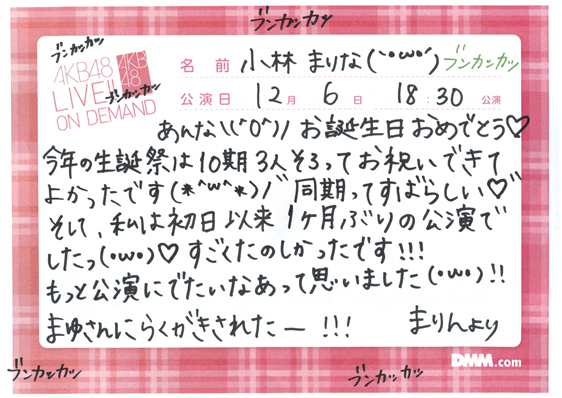 ブンカッカッ
ブンカッカッ
AKB48
LIVE!!
ON DEMAND
AKB
48
ブンカッカッ
名前 小林 まりな(`･ω･´) ブンカッカッ
公演日 12月 6日 18:30 公演
あんな\\(^O^)// お誕生日おめでとう♡
今年の生誕祭は10期3人そろってお祝いできて
よかったです(*^ω^*)ﾉ" 同期ってすばらしい♡"
そして、私は初日以来1ヶ月ぶりの公演で
したっ(･ω･)♡ すごくたのしかったです!!!
もっと公演にでたいなあって思いました(･ω･)!!
まゆさんにらくがきされたー !!! まりんより
DMM.com
ブンカッカッ
ブンカッカッ